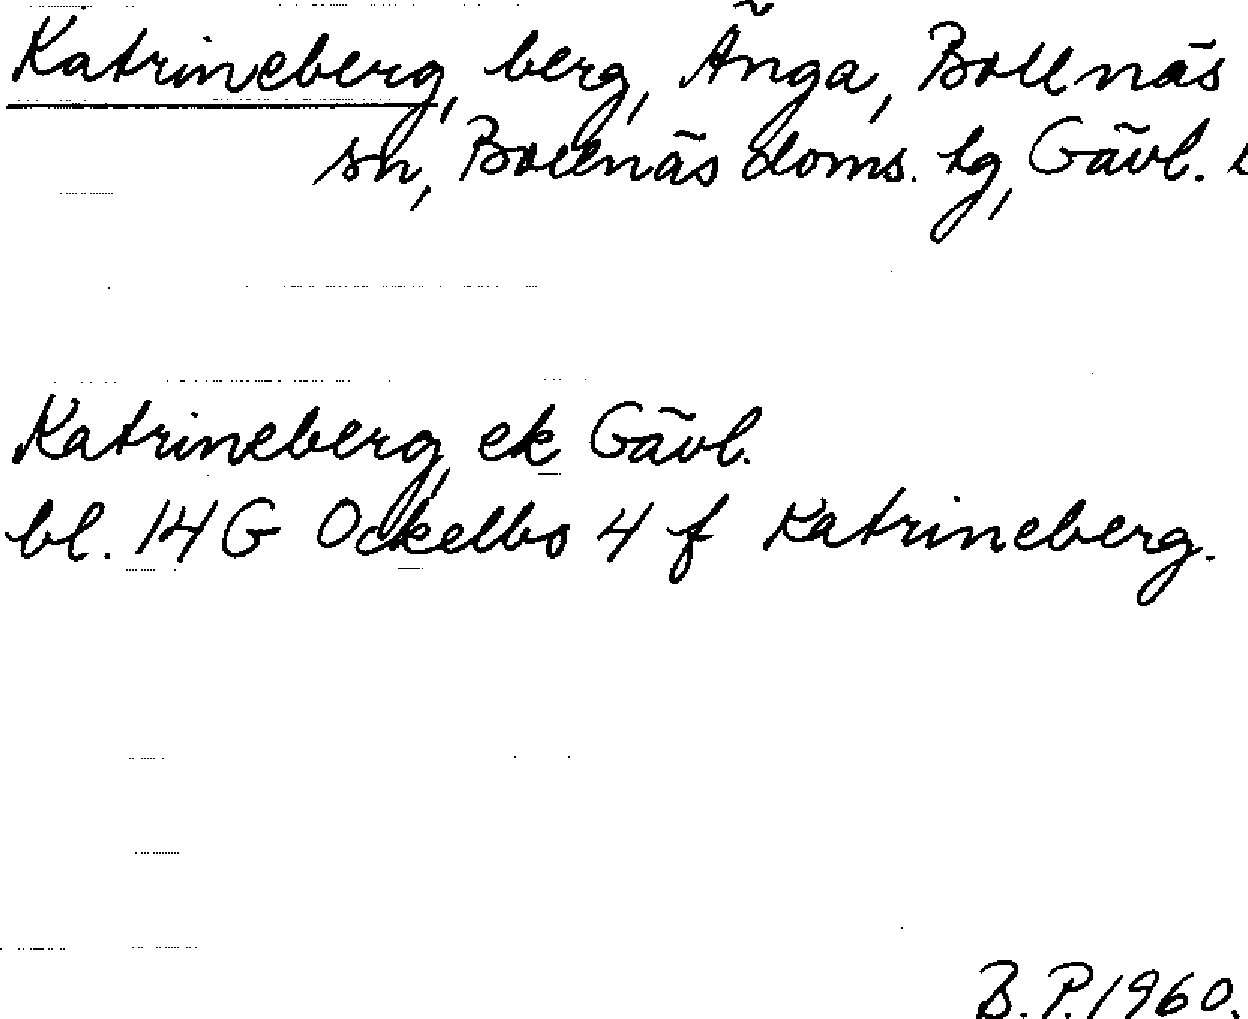 Katrineberg, berg, Änga, Bollnäs
sn, Bollnäs doms. tg, Gävl. l
Katrineberg, ek Gävl.
bl. 14 G Ockelbo 4 f Katrineberg.
B. P. 1960.